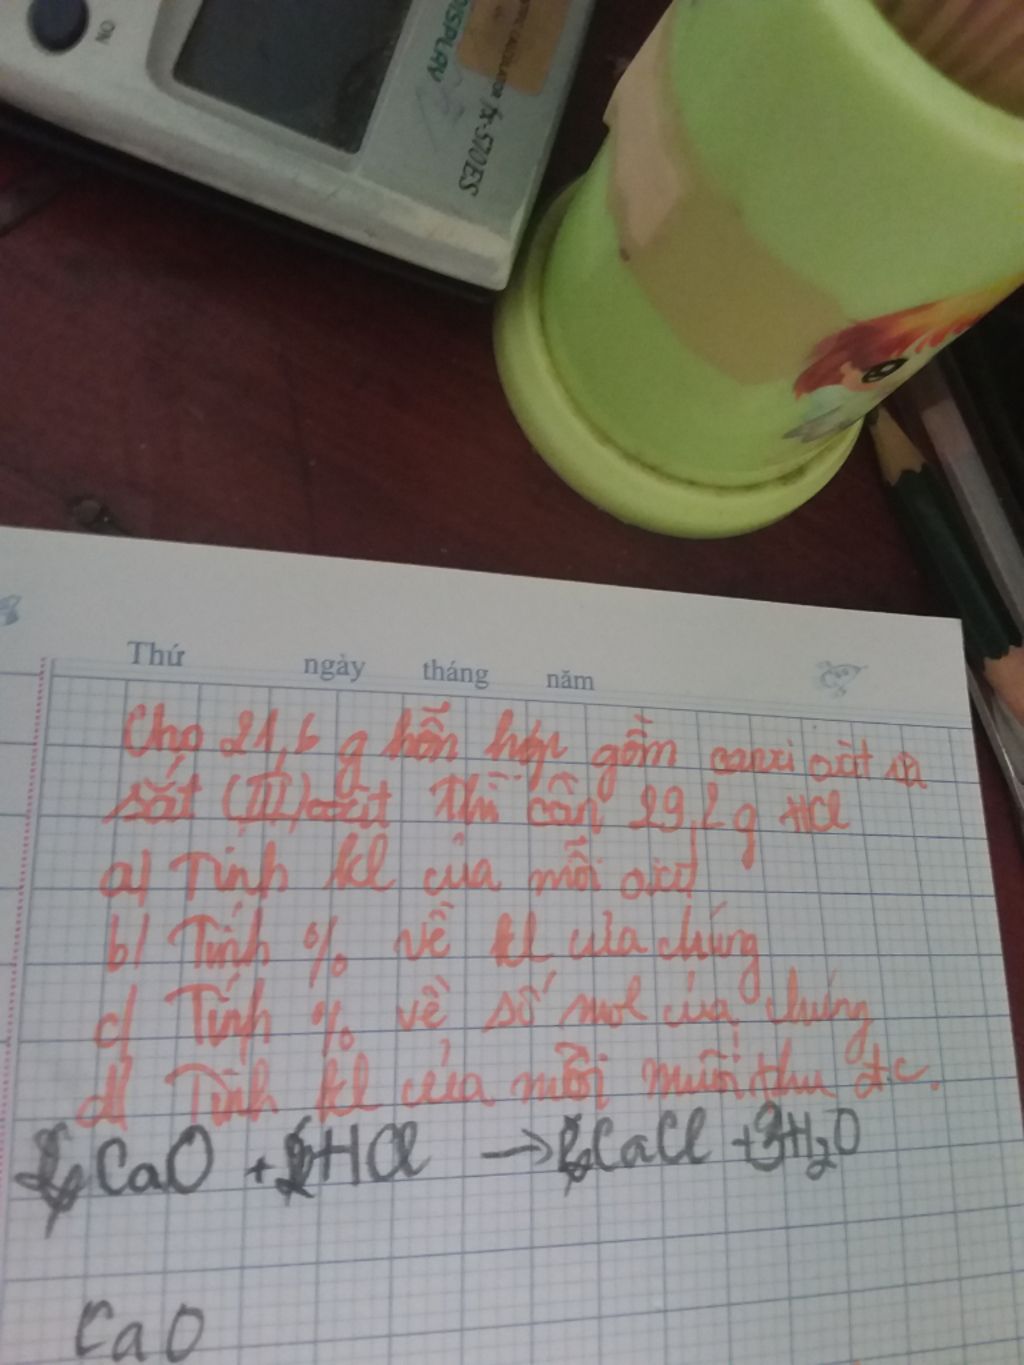 ON
DISPLAY
fx-570ES
Thứ ngày tháng năm
Cho 21,6 g hỗn hợp gồm canxi oxit và
sắt (III) oxit thì cần 29,2 g HCl
a) Tính kl của mỗi oxit
b) Tính % về kl của chúng
c) Tính % về số mol của chúng
d) Tính kl của mỗi muối thu đ.c.
CaO + HCl → CaCl + 3H2O
CaO